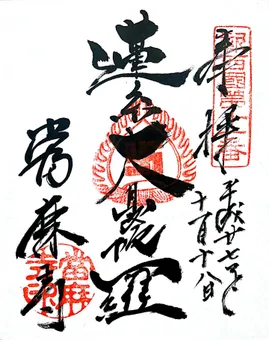 奉拝
平成廿七年
十一月十八日
蓮糸大曼荼羅
當麻寺